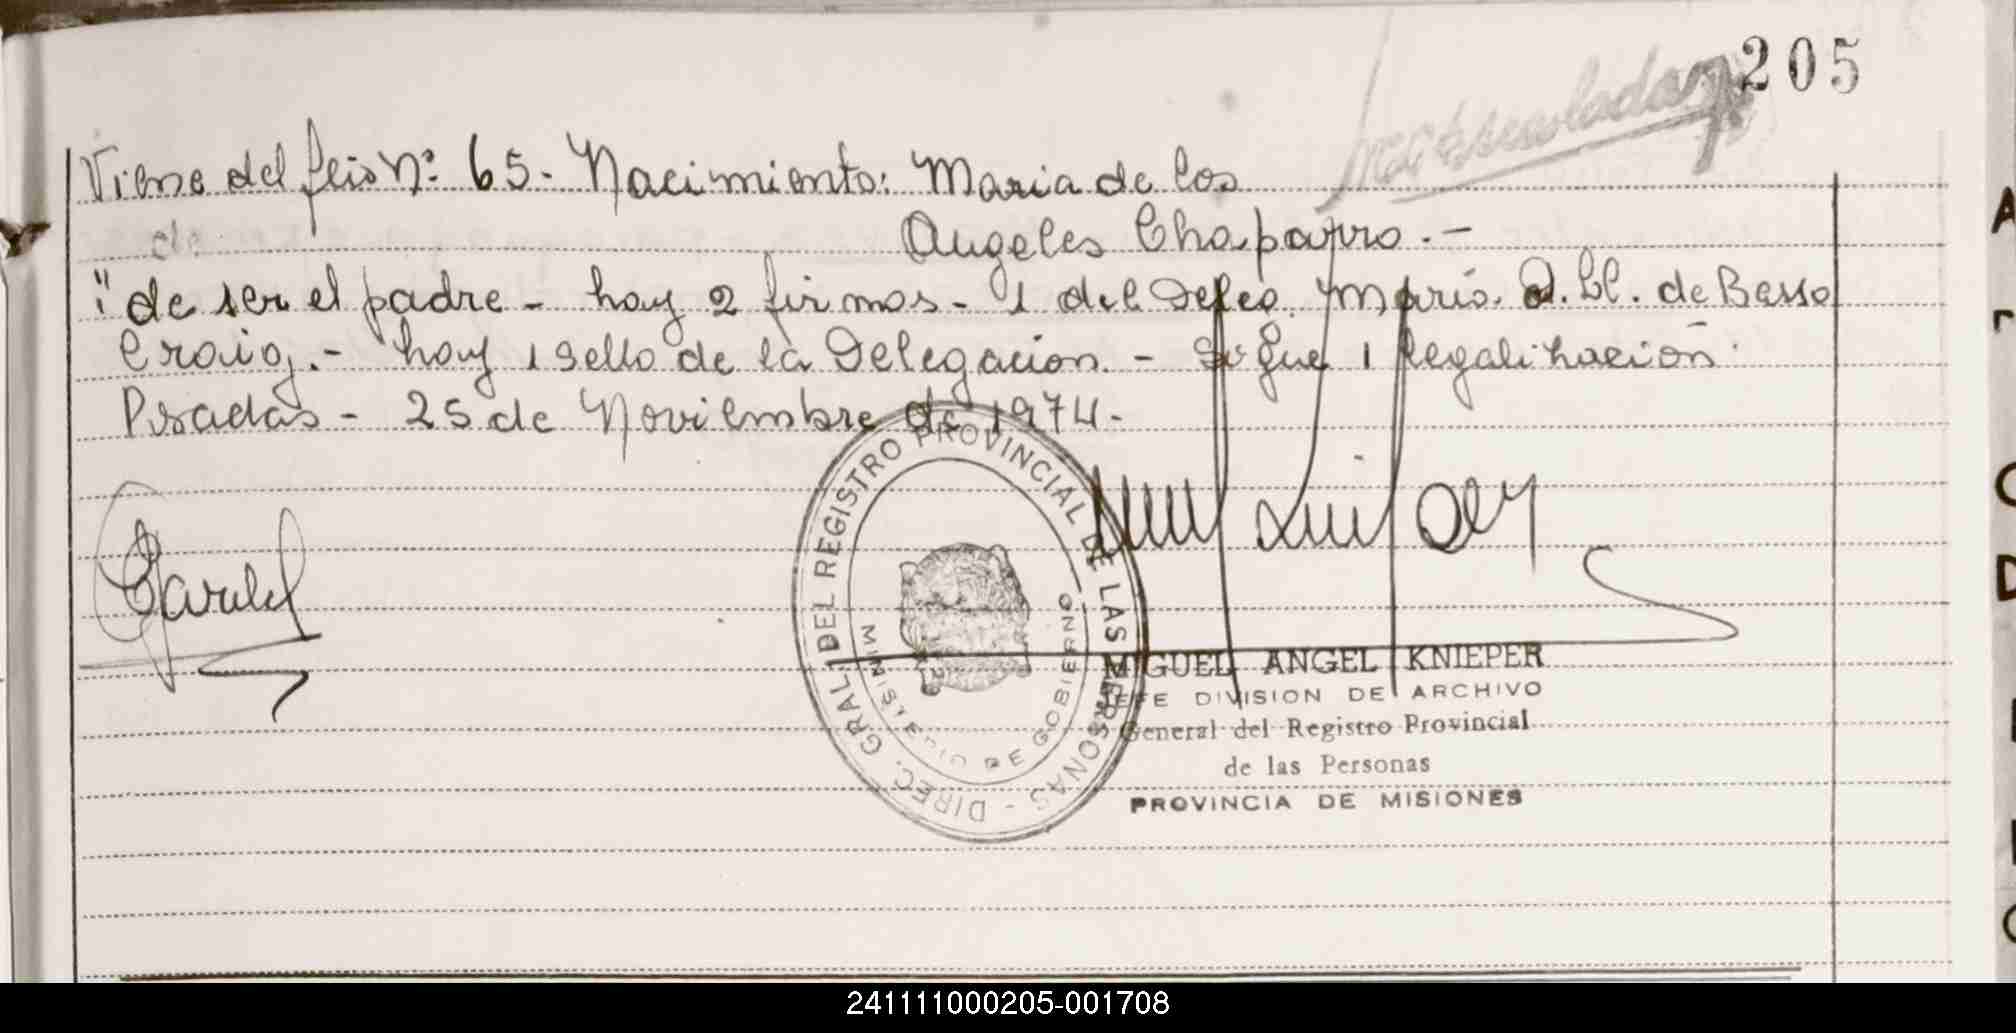 205
Viene del folio Nº 65. Nacimiento: Maria de los
de
Angeles Chaparro.-
"de ser el padre - hay 2 firmas - 1 del Deleg. Maria. Ll. de Basso
Craig.- hay 1 sello de la Delegación. - Sigue 1 legalización.
Posadas - 25 de Noviembre de 1974.-
DIREC. GRAL. DEL REGISTRO PROVINCIAL DE LAS PERSONAS -
MINISTERIO DE GOBIERNO
MIGUEL ANGEL KNIEPER
JEFE DIVISION DE ARCHIVO
General del Registro Provincial
de las Personas
PROVINCIA DE MISIONES
241111000205-001708